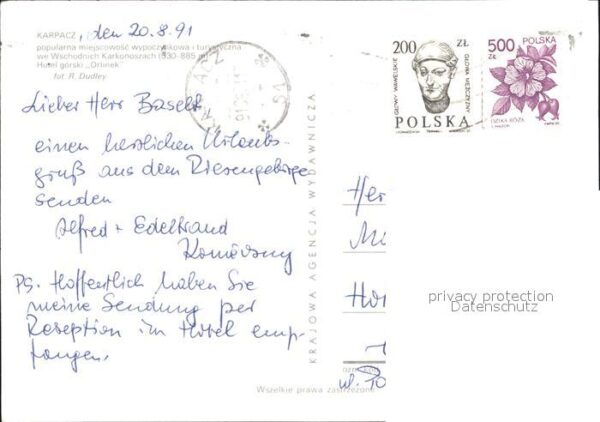 KARPACZ, den 20.8.91
popularna miejscowość wypoczynkowa i turystyczna
we Wschodnich Karkonoszach (530-885 m)
Hotel górski „Orlinek"
fot. R. Dudley
Lieber Herr
einen herzlichen Urlaubs-
gruß aus dem Riesengebirge
senden
Alfred + Edeltraud
PS. Hoffentlich haben Sie
meine Sendung per
Reception im Hotel emp-
fangen.
KRAJOWA AGENCJA WYDAWNICZA
Wszelkie prawa zastrzeżone
200 ZŁ
GŁOWY WAWELSKIE
GŁOWA MĘŻCZYZNY
POLSKA
POLSKA
500
ZŁ
DZIKA RÓŻA
Her
Hor
ul.
privacy protection
Datenschutz